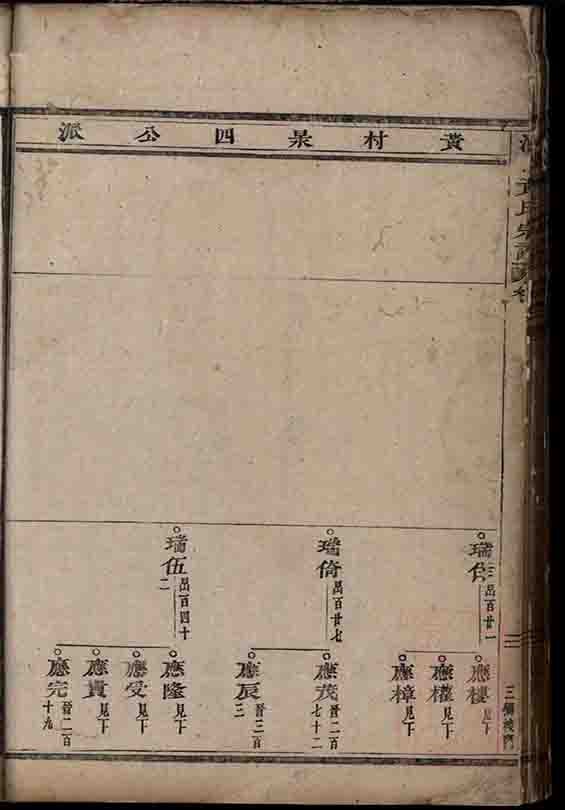 黃村杲四公派
瑞
昷百廿一
應樓見下
應權見下
應樟見下
瑞倚昷百廿七
應茂晉二百七十二
應辰晉三百三
瑞伍昷百四十二
應隆見下
應受見下
應貴見下
應完晉二百十九
氏宗
三